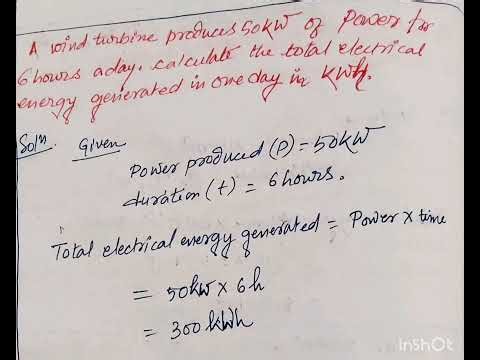 A wind turbine produces 50kW of Power for
6 hours a day. calculate the total electrical
energy generated in one day in KWh.
Soln. Given
Power produced (P) = 50kW
duration (t) = 6 hours.
Total electrical energy generated = Power × time
= 50kw × 6h
= 300kWh
InShOt